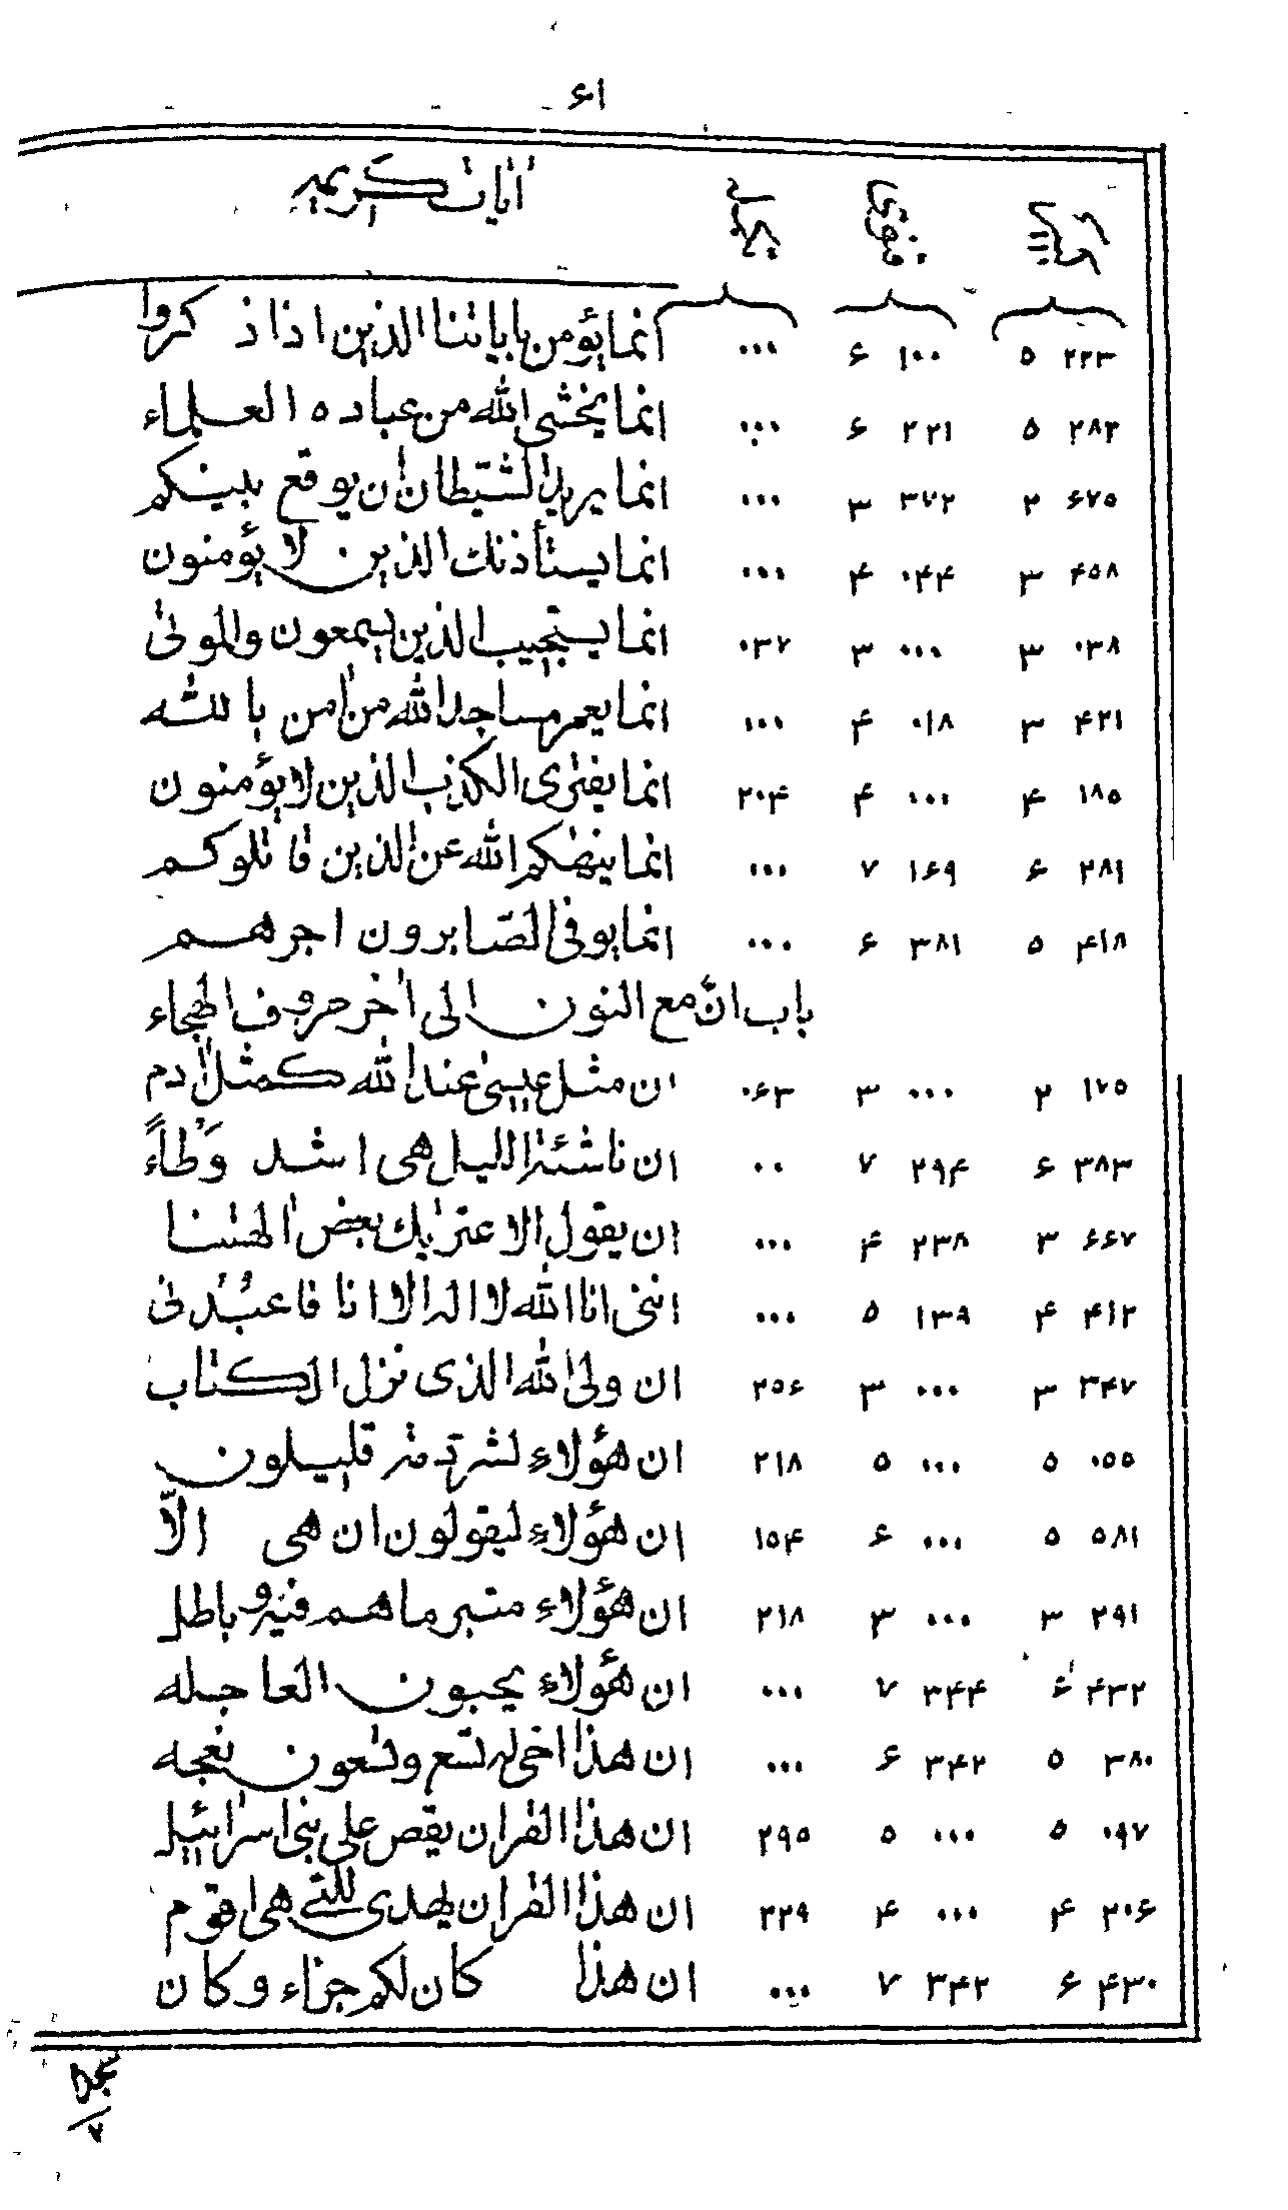 ۶۱
آیات کریمه
۲۲۳ ۵ ۱۰۰ ۶ ۰۰۰ انما یؤمن بایاتنا الذین اذا ذکروا
۲۸۲ ۵ ۲۲۱ ۶ ۰۰۰ انما یخشی الله من عباده العلماء
۶۷۵ ۲ ۳۷۲ ۳ ۰۰۰ انما یرید الشیطان ان یوقع بینکم
۴۵۸ ۳ ۰۴۴ ۴ ۰۰۰ انما یستأذنك الذین لا یؤمنون
۰۳۸ ۳ ۰۰۰ ۳ ۰۳۷ انما یستجیب الذین یسمعون والموتی
۴۲۱ ۳ ۰۱۸ ۴ ۰۰۰ انما یعمر مساجد الله من امن بالله
۱۸۵ ۴ ۰۰۰ ۴ ۲۰۴ انما یفتری الکذب الذین لا یؤمنون
۲۸۱ ۶ ۱۶۹ ۷ ۰۰۰ انما ینهٰکم الله عن الذین قاتلوکم
۴۱۸ ۵ ۳۸۱ ۶ ۰۰۰ انما یوفی الصّابرون اجرهم
باب انّ مع النون الی اٰخر حروف الهجاء
۱۷۵ ۲ ۰۰۰ ۳ ۰۶۳ ان مثل عیسیٰ عند الله کمثل اٰدم
۳۸۳ ۶ ۲۹۴ ۷ ۰۰ ان ناشئة اللیل هی اشد وَطْاً
۶۶۷ ۳ ۲۳۸ ۴ ۰۰۰ ان یقول الا عترٰیك بعض اٰلهتنا
۴۱۲ ۴ ۱۳۹ ۵ ۰۰۰ اننی انا الله لا اله الا انا فاعبُدنی
۳۴۷ ۳ ۰۰۰ ۳ ۲۵۶ ان ولیّ الله الذی نزل الکتاب
۰۵۵ ۵ ۰۰۰ ۵ ۲۱۸ ان هؤلاء لشرذمة قلیلون
۵۸۱ ۵ ۰۰۰ ۶ ۱۵۴ ان هؤلاء لیقولون ان هی الّا
۲۹۱ ۳ ۰۰۰ ۳ ۲۱۸ ان هؤلاء متبر ما هم فیه و باطل
۴۳۲ ۶ ۳۴۴ ۷ ۰۰۰ ان هؤلاء یحبون العاجله
۳۸۰ ۵ ۳۴۲ ۶ ۰۰۰ ان هذا اخی له تسع وتسعون نعجه
۰۹۷ ۵ ۰۰۰ ۵ ۲۹۵ ان هذا القران یقص علی بنی اسرائیل
۲۰۶ ۴ ۰۰۰ ۴ ۲۲۹ ان هذا القران یهدی للتی هی اقوم
۴۳۰ ۶ ۳۴۲ ۷ ۰۰۰ ان هذا کان لکم جزاء وکان